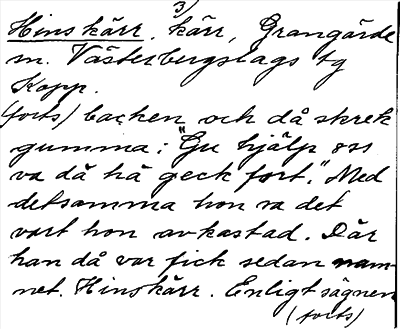 3)
Hinskärr, kärr, Grangärde
m. Västerbergslags tg
Kopp.
(forts) backen och då skrek
gumma: "Gu hjälp oss
va då hä geck fort." Med
detsamma hon sa det
vart hon avkastad. Där
han då var fick sedan nam-
net. Hinskärr. Enligt sägnen
(forts)